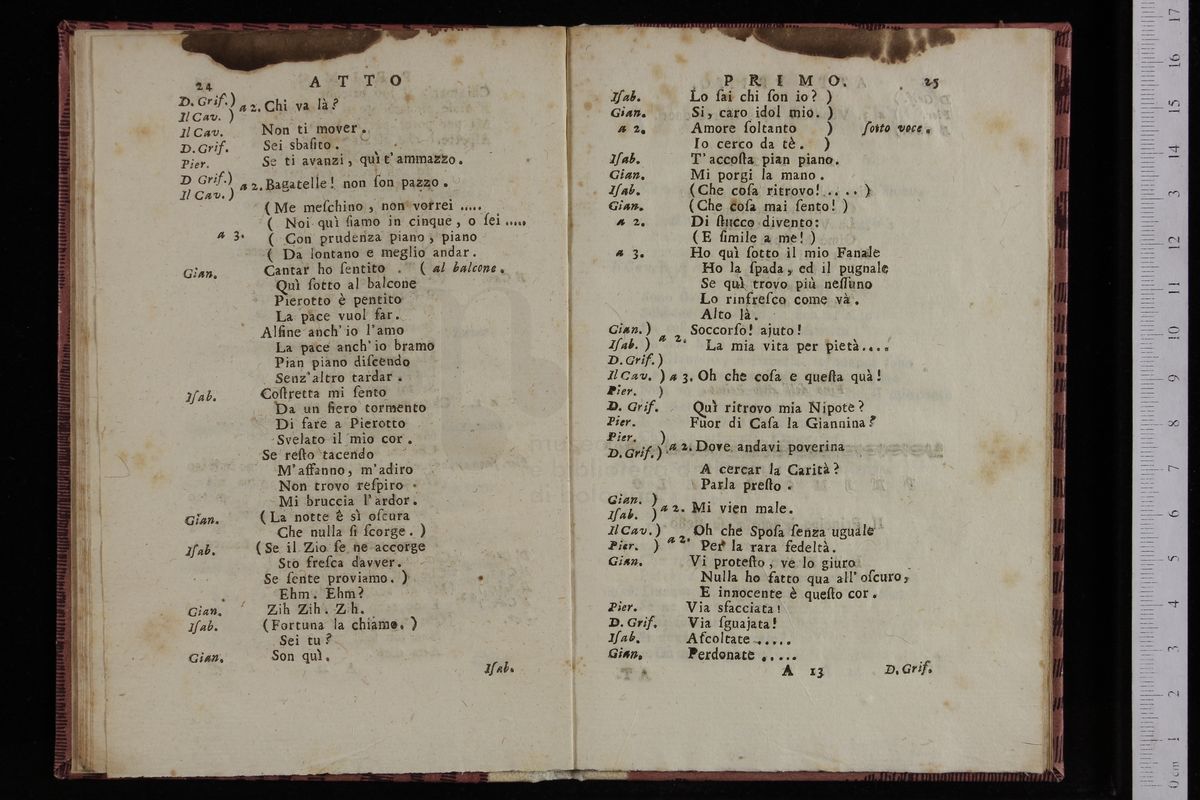 24 ATTO
D. Grif.)
Il Cav. ) a 2. Chi va là?
Il Cav. Non ti mover.
D. Grif. Sei sbaſito.
Pier. Se ti avanzi, quì t'ammazzo.
D Grif.)
Il Cav.) a 2. Bagatelle! non ſon pazzo.
(Me meſchino, non vorrei .....
( Noi quì ſiamo in cinque, o ſei .....
a 3. ( Con prudenza piano, piano
( Da lontano e meglio andar.
Gian. Cantar ho ſentito. ( al balcone.
Quì ſotto al balcone
Pierotto è pentito
La pace vuol far.
Alfine anch' io l'amo
La pace anch'io bramo
Pian piano diſcendo
Senz'altro tardar.
Iſab. Coſtretta mi ſento
Da un fiero tormento
Di fare a Pierotto
Svelato il mio cor.
Se reſto tacendo
M'affanno, m'adiro
Non trovo reſpiro
Mi bruccia l'ardor.
Gian. (La notte è sì oſcura
Che nulla ſi ſcorge. )
Iſab. (Se il Zio ſe ne accorge
Sto freſca davver.
Se ſente proviamo. )
Ehm. Ehm?
Gian. Zih Zih. Zih.
Iſab. (Fortuna la chiamo. )
Sei tu?
Gian. Son quì.
Iſab.
PRIMO. 25
Iſab. Lo ſai chi ſon io? )
Gian. Si, caro idol mio. )
a 2. Amore ſoltanto ) ſotto voce.
Io cerco da tè. )
Iſab. T'accoſta pian piano.
Gian. Mi porgi la mano.
Iſab. (Che coſa ritrovo! .... )
Gian. (Che coſa mai ſento! )
a 2. Di ſtucco divento:
(E ſimile a me! )
a 3. Ho quì ſotto il mio Fanale
Ho la ſpada, ed il pugnale
Se quì trovo più neſſuno
Lo rinfreſco come và.
Alto là.
Gian. ) Soccorſo! ajuto!
Iſab. ) a 2. La mia vita per pietà....
D. Grif.)
Il Cav. ) a 3. Oh che coſa e queſta quà!
Pier. )
D. Grif. Quì ritrovo mia Nipote?
Pier. Fuor di Caſa la Giannina?
Pier. )
D. Grif.) a 2. Dove andavi poverina
A cercar la Carità?
Parla preſto.
Gian. )
Iſab. ) a 2. Mi vien male.
Il Cav.) Oh che Spoſa ſenza uguale
Pier. ) a 2. Per la rara fedeltà.
Gian. Vi proteſto, ve lo giuro
Nulla ho fatto qua all'oſcuro,
E innocente è queſto cor.
Pier. Via sfacciata!
D. Grif. Via ſguajata!
Iſab. Aſcoltate .....
Gian. Perdonate .....
A 13 D. Grif.